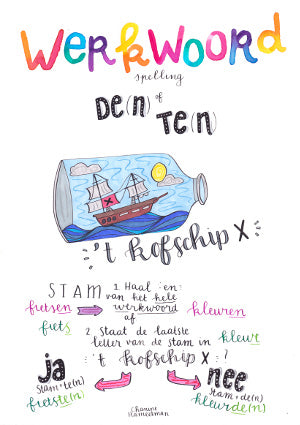 WERKWOORD
spelling
DE(n) of
TE(n)
't kofschip X
STAM 1. Haal en
van het hele
fietsen werkwoord kleuren
af
fiets 2. Staat de laatste kleur
letter van de stam in
ja 't kofschip X ? nee
stam+te(n) stam+de(n)
fietste(n) kleurde(n)